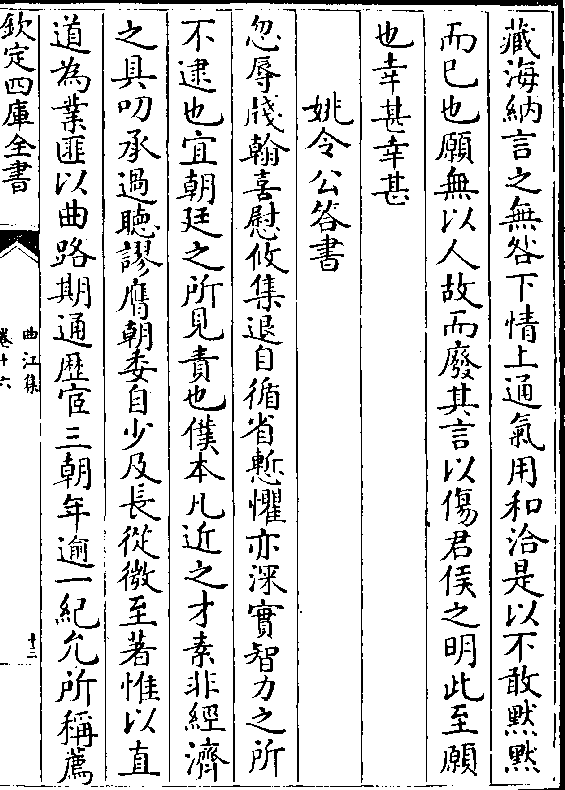 藏海納言之無咎下情上通氣用和洽是以不敢黙黙
而已也願無以人故而廢其言以傷君侯之明此至願
也幸甚幸甚
姚令公答書
忽辱牋翰喜慰攸集退自循省慙懼亦深實智力之所
不逮也宜朝廷之所見責也僕本凡近之才素非經濟
之具叨承過聽謬膺朝委自少及長從微至著惟以直
道為業匪以曲路期通歴宦三朝年逾一紀允所稱薦
欽定四庫全書
曲江集
卷十六
十三